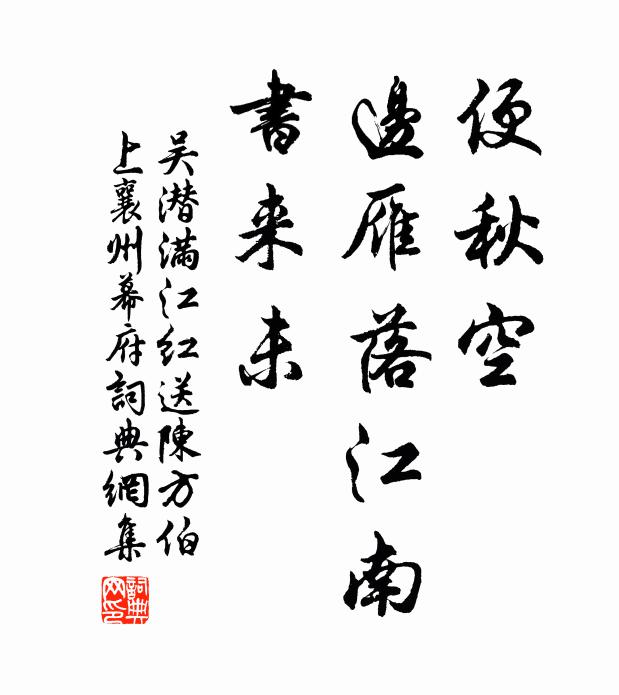 便秋空
邊雁落江南
書来未
吴潜满江红送陳方伯
上襄州幕府詞典網集
詞典
网印